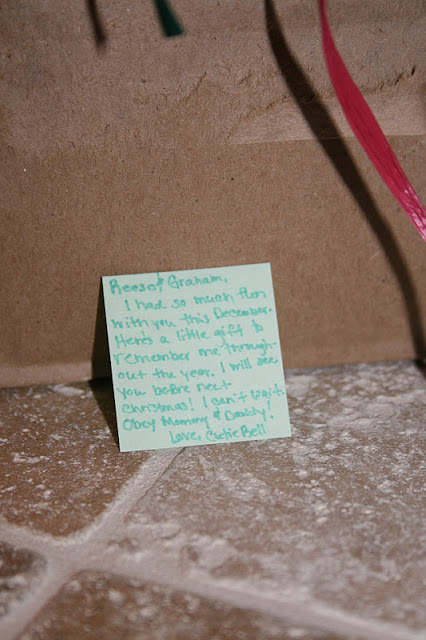 Reese & Graham,
I had so much fun
with you this December.
Here's a little gift to
remember me through-
out the year. I will see
you before next
christmas! I can't wait.
Obey Mommy & Daddy!
Love, Cutie Bell